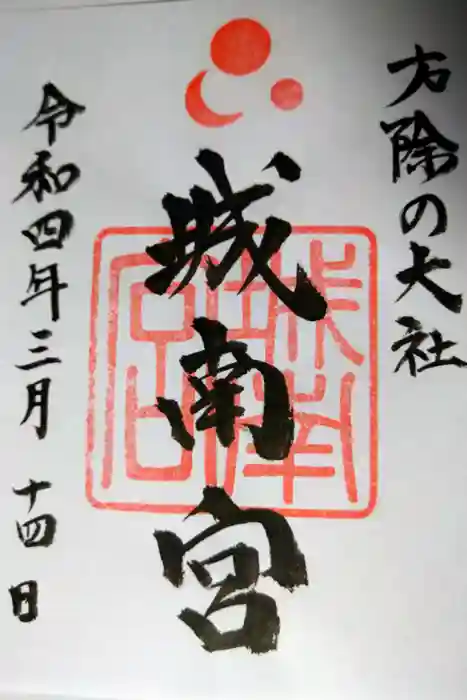 方除の大社
城南宮
令和四年三月十四日
城南宮印